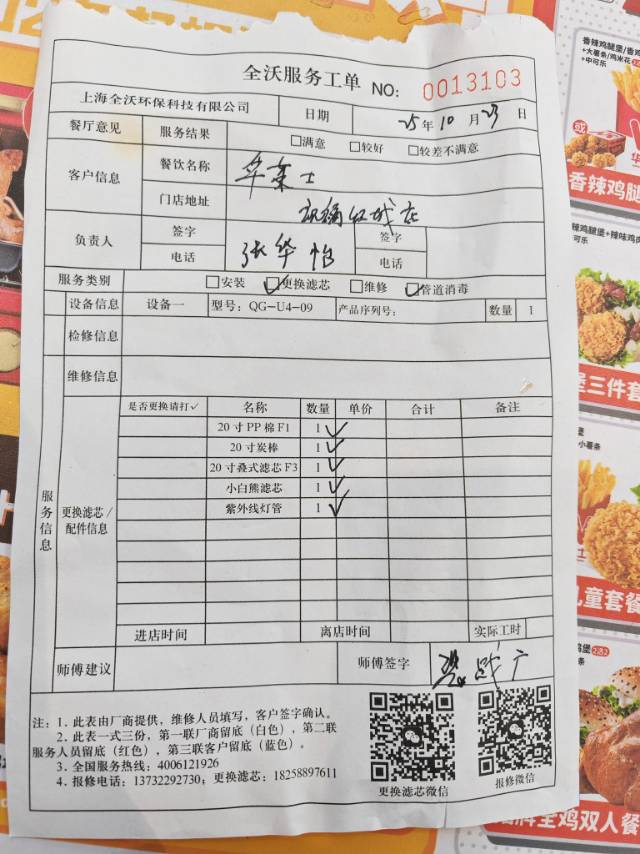 全沃服务工单 NO: 0013103
上海全沃环保科技有限公司 日期 25年10月23日
餐厅意见 服务结果 □满意 □较好 □较差不满意
客户信息 餐饮名称 华莱士
门店地址
负责人 签字 张华怡 签字
电话 电话
服务类别 □安装 ☑更换滤芯 □维修 ☑管道消毒
设备信息 设备一 型号: QG-U4-09 产品序列号: 数量 1
检修信息
维修信息
服务信息
更换滤芯/配件信息
是否更换请打✓ 名称 数量 单价 合计 备注
20寸PP棉F1 1 ✓
20寸炭棒 1 ✓
20寸叠式滤芯F3 1 ✓
小白熊滤芯 1 ✓
紫外线灯管 1 ✓
进店时间 离店时间 实际工时
师傅建议 师傅签字
注: 1. 此表由厂商提供，维修人员填写，客户签字确认。
2. 此表一式三份，第一联厂商留底（白色），第二联
服务人员留底（红色），第三联客户留底（蓝色）。
3. 全国服务热线: 4006121926
4. 报修电话: 13732292730; 更换滤芯: 18258897611
更换滤芯微信 报修微信
香辣鸡腿堡/香
+大薯条/鸡米花
+中可乐
或
香辣鸡腿
辣鸡腿堡+辣味鸡
可乐
堡三件套
小薯条
儿童套餐
2选2
全鸡双人餐